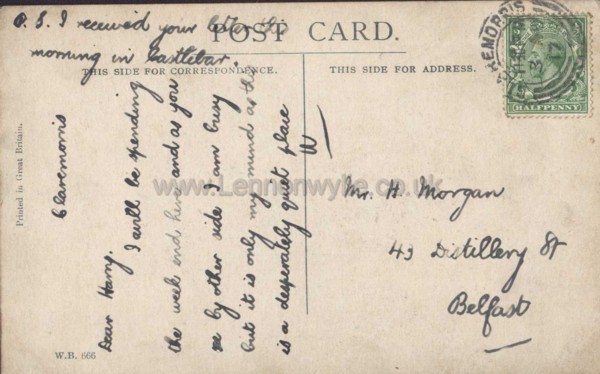 P.S. I received your letter this
morning in Castlebar.
POST CARD.
THIS SIDE FOR CORRESPONDENCE.
THIS SIDE FOR ADDRESS.
Claremorris
Dear Harry.
I will be spending
the week end here and as you
see by other side I am busy
but it is only my mind as this
is a desperately quiet place
W
Mr. H. Morgan
43 Distillery St
Belfast
Printed in Great Britain.
W.B. 666
HALFPENNY
www.Lennonwylie.co.uk